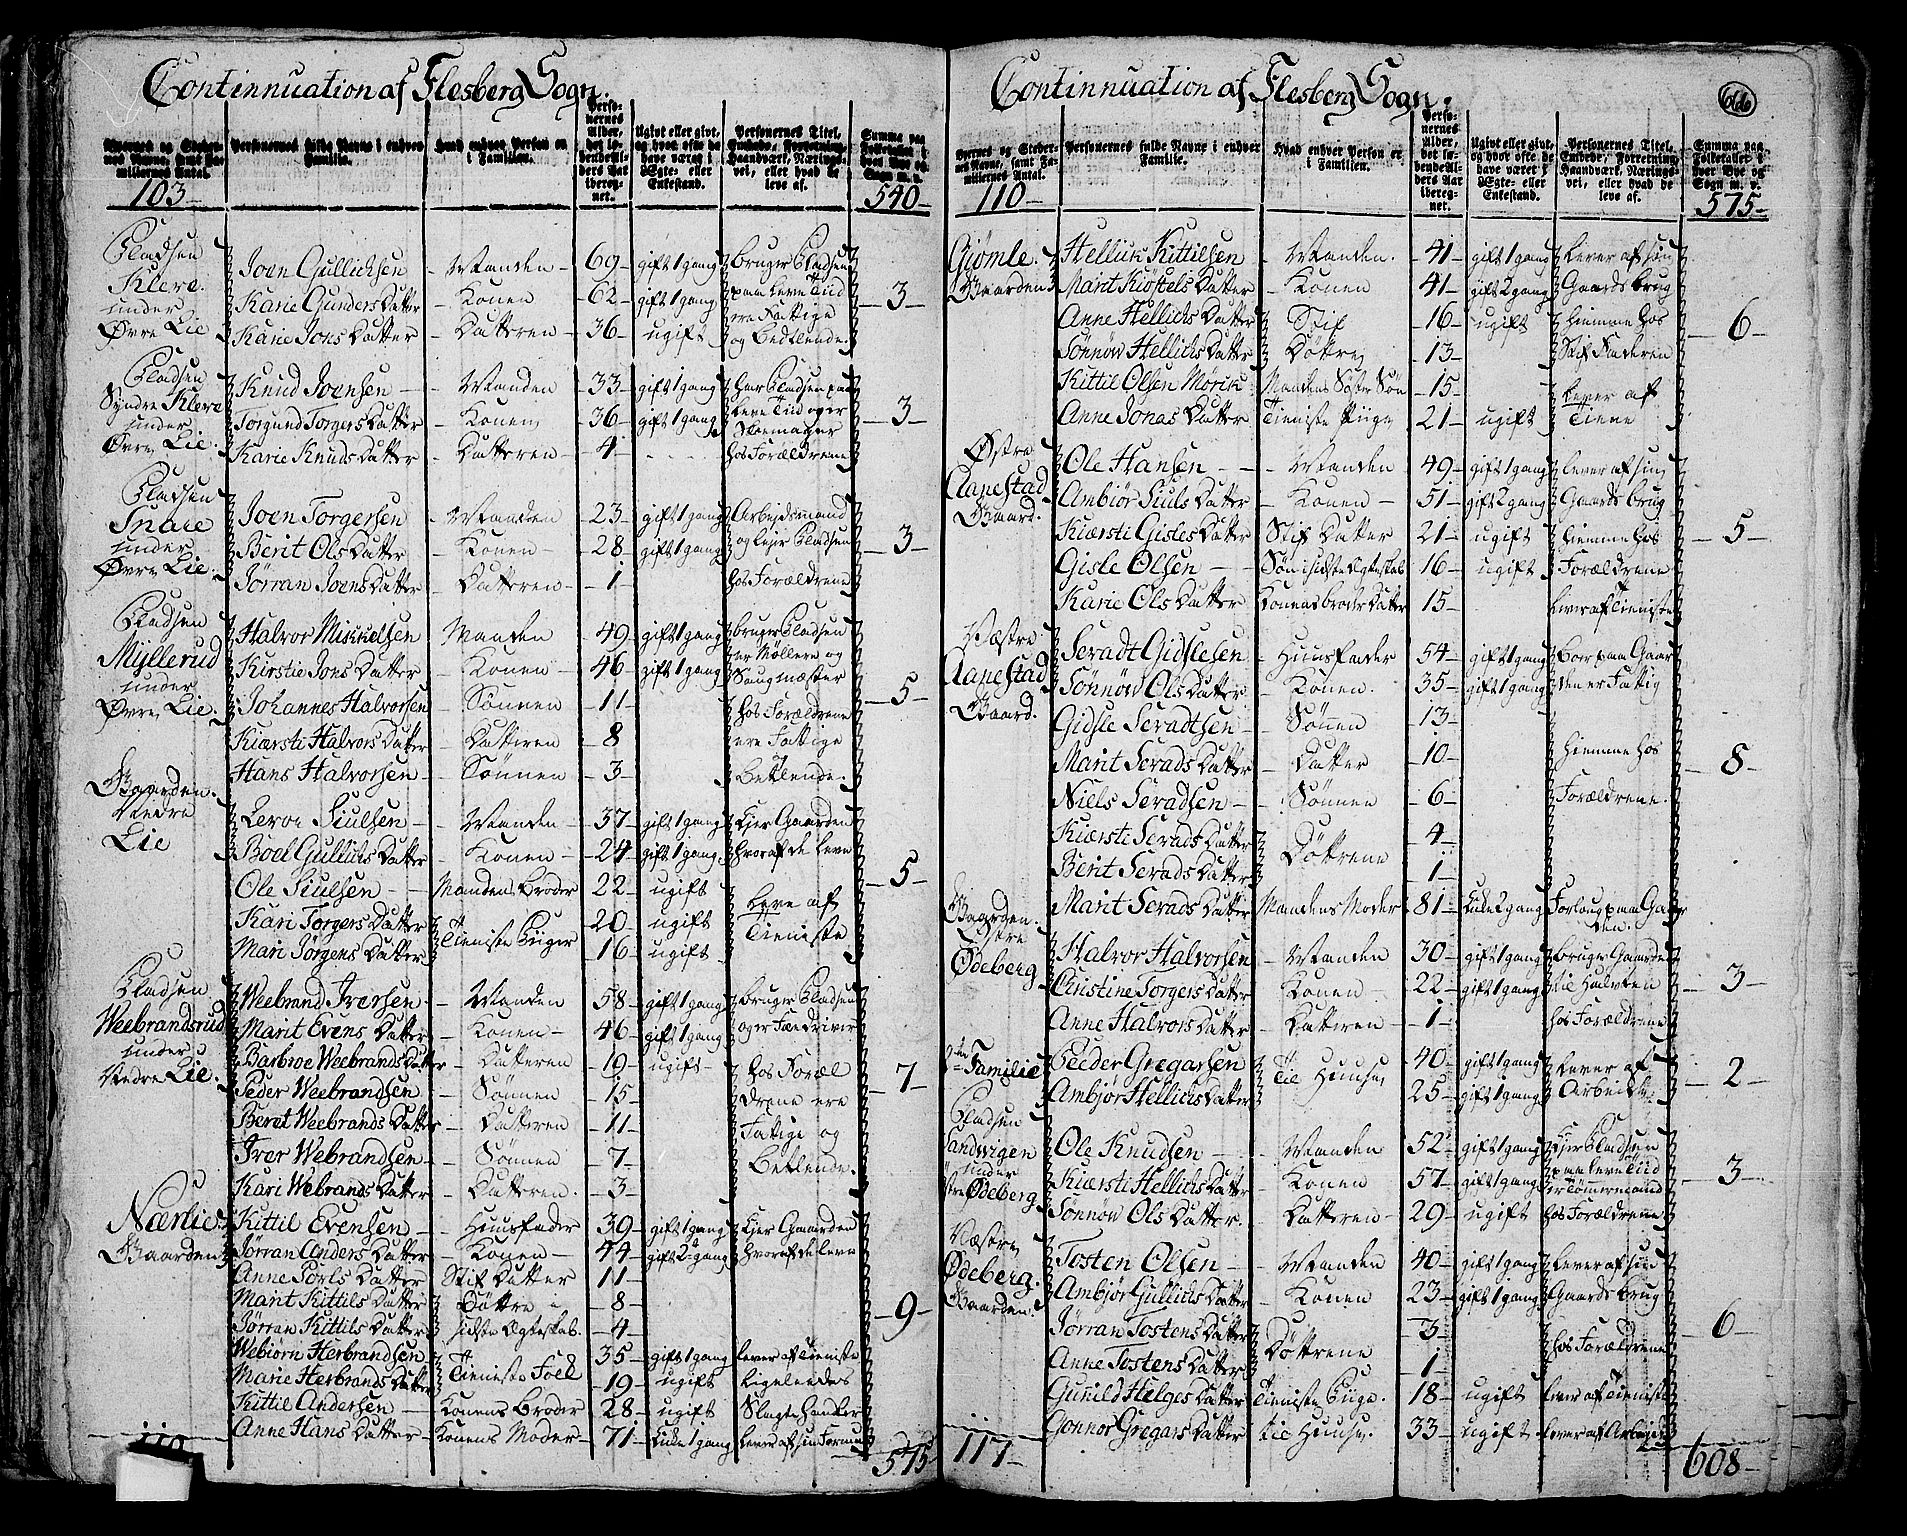 Continnuation af Flesberg Sogn.
Personernes fulde Navne i enhver Familie.
Hvad enhver Person er i Familien.
Personernes Alder, det løbendeAlders Aar iberegnet.
Ugivt eller givt, og hvor ofte de have været i Ægte- eller Enkestand.
Personernes Titel, Embede, Forretning, Haandværk, Næringsvei, eller hvad de leve af.
Summa paa Folketallet i hver Bye og Sogn m. v.
103 540
Pladsen Klere under Øvre Lie
Joen Gullichsen Manden 69 gift 1 gang bruger Pladsen
Karie Gunders Datter Konen 62 gift 1 gang paa Leve Tiid 3
Karie Jons Datter Datteren 36 ugift ere Fattige og Betlende.
Pladsen Syndre Klere under Øvre Lie
Knud Joensen Manden 33 gift 1 gang har Pladsen paa
Torgund Torgers Datter Konen 36 gift 1 gang Leve Tiid og er Skoemager 3
Karie Knuds Datter Datteren 4 hos Forældrene
Pladsen Snare under Øvre Lie.
Joen Torgersen Manden 23 gift 1 gang Arbejdsmand
Berit Ols Datter Konen 28 gift 1 gang og lejer Pladsen 3
Jørran Joens Datter Datteren 1 hos Forældrene
Pladsen Myllerud under Øvre Lie.
Halvor Mikkelsen Manden 49 gift 1 gang bruger Pladsen
Kirstie Jons Datter Konen 46 gift 1 gang er Møllere og Saugmæster
Johannes Halvorsen Sønnen 11 hos Forældrene 5
Kiærsti Halvors Datter Datteren 8 ere Fattige
Hans Halvorsen Sønnen 3 Betlende.
Gaarden Nedre Lie
Leroe Siulsen Manden 37 gift 1 gang Ejer Gaarden
Boel Gullichs Datter Konen 24 gift 1 gang hvoraf de leve
Ole Siulsen Mandens Broder 22 ugift 5
Kari Torgers Datter Tieniste Piiger 20 ugift leve af
Mari Jørgens Datter 16 ugift Tieniste
Pladsen Weebrandsrud under Nedre Lie.
Weebrand Iversen Manden 58 gift 1 gang bruger Pladsen
Marit Evens Datter Konen 46 gift 1 gang
Barbroe Weebrands Datter Datteren 19 ugift hos Foræl 7
Peder Weebrandsen Sønnen 15 drene ere
Beret Weebrands Datter Datteren 11 Fattige og
Iver Webrandsen Sønnen 7 Betlende.
Kari Webrands Datter Datteren 3
Nærlie Gaarden
Kittil Evensen Huusfader 39 gift 1 gang Ejer Gaarden
Jørran Anders Datter Konen 44 gift 2 gang hvoraf de leve
Anne Porls Datter Stif Datter 11
Marit Kittils Datter Døttre i 8
Jørran Kittils Datter sidste Ægteskab. 4 9
Webiørn Herbrandsen Tieniste Folk 35 gift 1 gang lever af Tieniste
Marie Herbrands Datter 19 ugift ligeledes
Kittil Andersen Konens Broder 28 ugift
Anne Hans Datter Konens Moder 71 Enke 1 gang
110 575
Continnuation af Flesberg Sogn.
666
Personernes fulde Navne i enhver Familie.
Hvad enhver Person er i Familien.
Personernes Alder, det løbendeAlders Aar iberegnet.
Ugivt eller givt, og hvor ofte de have været i Ægte- eller Enkestand.
Personernes Titel, Embede, Forretning, Haandværk, Næringsvei, eller hvad de leve af.
Summa paa Folketallet i hver Bye og Sogn m. v.
110 575
Gjømle Gaarden
Helluk Kittilsen Manden. 41 gift 1 gang Lever af sin
Marit Kiøstels Datter Konen 41 gift 2 gang Gaards brug
Anne Hellichs Datter Stif 16 ugift hiemme hos 6
Sønnøw Hellichs Datter Døttre 13 Stif Faderen
Kittil Olsen Mørik Mandens Søster Søn 15
Anne Jonas Datter Tieniste Piige 21 ugift Lever af Tiene
Østre Aanestad Gaard.
Ole Hansen Manden 49 gift 1 gang lever af sin
Ambiør Siuls Datter Konen 51 gift 2 gang Gaards brug
Kiærsti Gisles Datter Stif Datter 21 ugift hiemme hos 5
Gisle Olsen Søn i sidste Ægteskab 16 ugift Forældrene
Karie Ols Datter Konens broder Datter 15 lever af Tieniste
Væstre Aanestad Gaard.
Seradt Gidslesen Huusfader 54 gift 1 gang boer paa Gaar
Sønnøw Ols Datter Konen. 35 gift 1 gang den er Fattig
Gidsle Seradtsen Sønnen 13
Marit Serads Datter Datter 10 hiemme hos 8
Niels Seradsen Sønnen 6 Forældrene.
Kiærsti Serads Datter Døttrene 4
Berit Serads Datter 1
Marit Serads Datter Mandens Moder 81 Enke 2 gang Forloug paa Gaarden.
Gaarden Østre Ødeberg
Halvor Halvorsen Manden 30 gift 1 gang bruger Gaarden
Christine Torgers Datter Konen 22 gift 1 gang til Halvten 3
Anne Halvors Datter Datteren 1 hos Forældrene
2den Familie
Peeder Gregarsen Til Huuse 40 gift 1 gang Lever af 2
Ambjør Hellichs Datter 25 gift 1 gang Arbeide
Pladsen Sandwigen under Østre Ødeberg
Ole Knudsen Manden 52 gift 1 gang Ejer Pladsen
Kiærsti Hellichs Datter Konen 57 gift 1 gang paa Leve Tiid er Tømmermand 3
Sønnøw Ols Datter. Datteren 29 ugift hos Forældrene
Væstre Ødeberg. Gaarden
Tosten Olsen Manden 40 gift 1 gang lever af sin
Ambjør Gullichs Datter Konen 23 gift 1 gang Gaards brug
Jørran Tostens Datter Døttrene 3 hos Forældrene 6
Anne Tostens Datter 1
Gunild Helges Datter Tieniste Piige. 18 ugift lever af Tieniste
Gonnor Gregars Datter til Huuse. 33 ugift lever af Arbeide
117 608